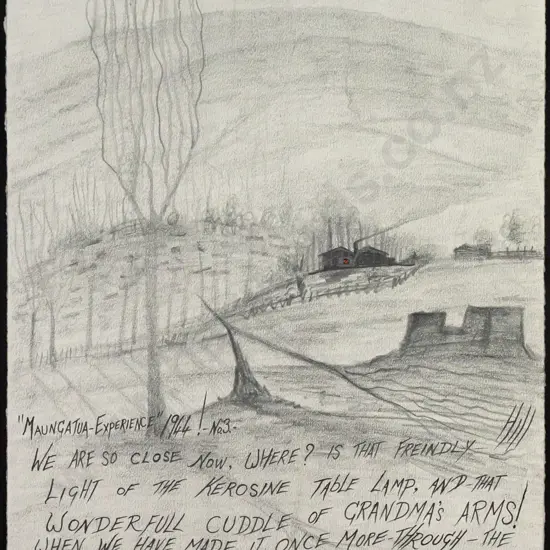 "MAUNGATUA-EXPERIENCE" 1944!-No3.-
Hill
WE ARE SO CLOSE NOW. WHERE? IS THAT FREINDLY
LIGHT OF THE KEROSINE TABLE LAMP, AND THAT
WONDERFULL CUDDLE OF GRANDMA'S ARMS!
WHEN WE HAVE MADE IT ONCE MORE-THROUGH-THE